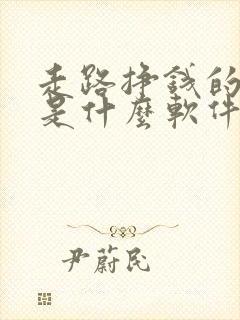 走路挣錢的
是什麼軟件
尹蔚民